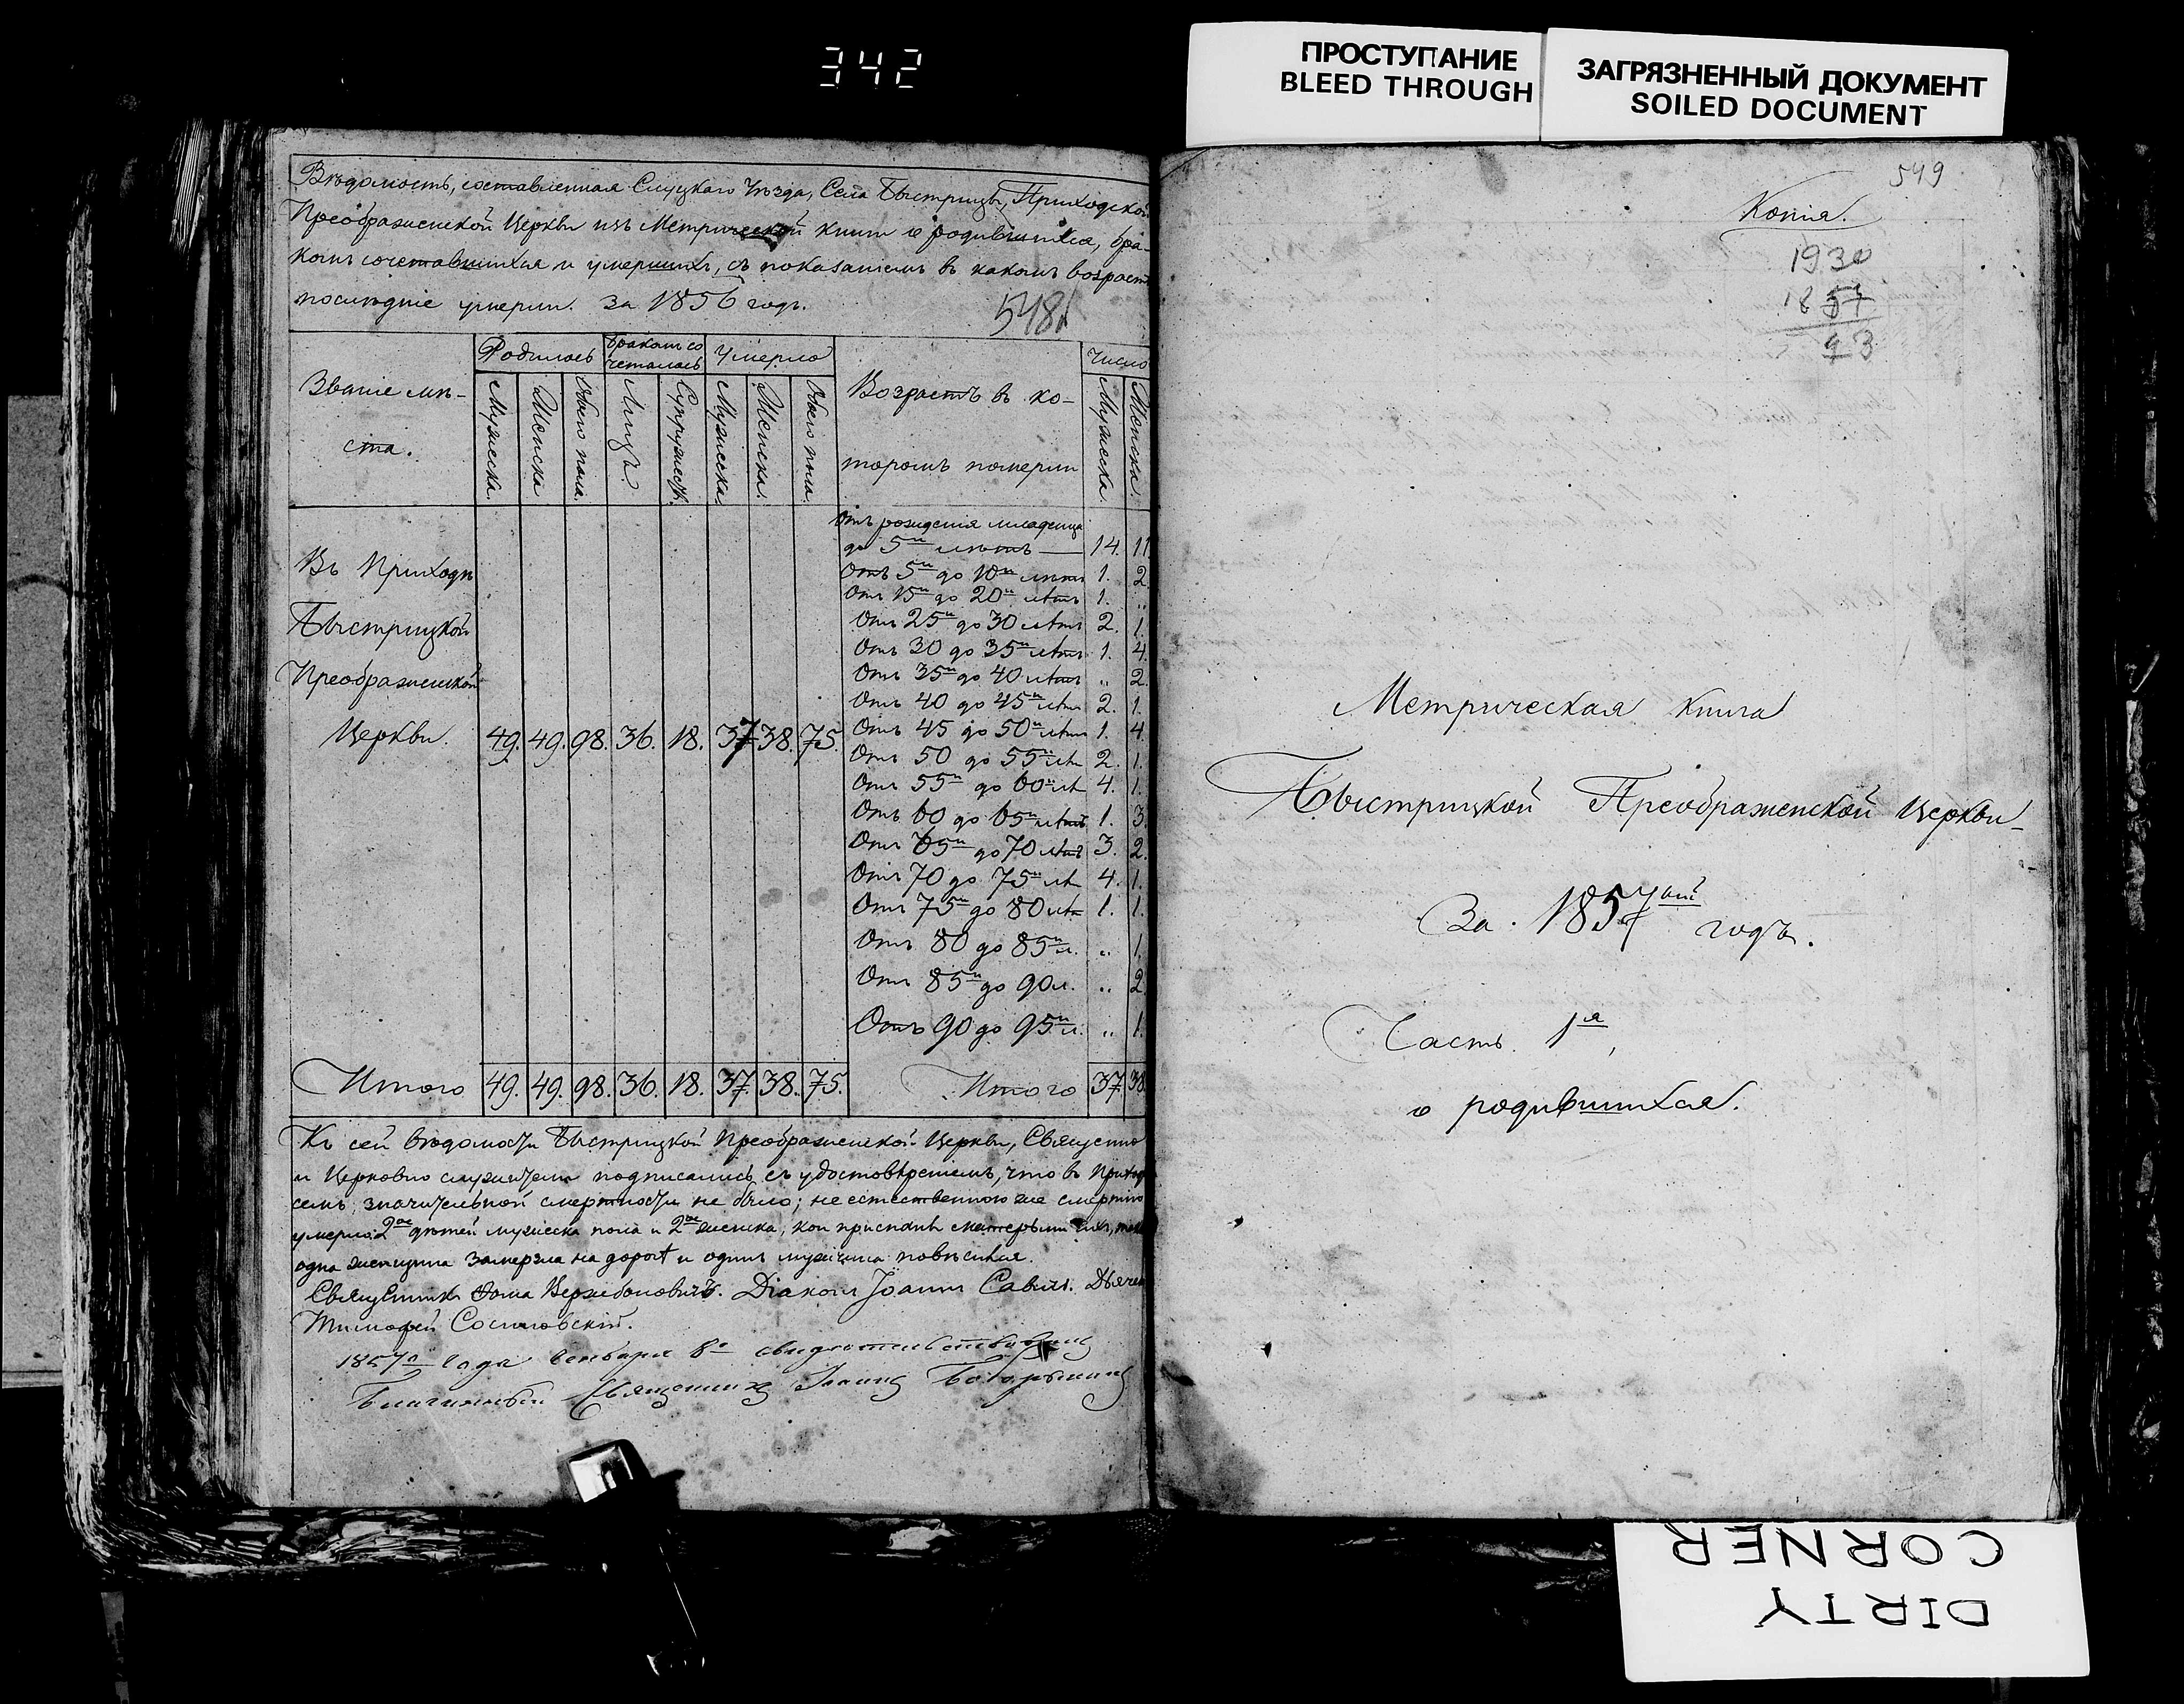 342
ПРОСТУПАНИЕ
BLEED THROUGH
ЗАГРЯЗНЕННЫЙ ДОКУМЕНТ
SOILED DOCUMENT
Вѣдомость, составленная Слуцкаго Уѣзда, Села Быстрицы, Приходской
Преображенской Церкви изъ Метрической книги о родившихся, бра-
комъ сочетавшихся и умершихъ, съ показаніемъ въ какомъ возрастѣ
послѣдніе умерли. За 1856 годъ.
548
Званіе мѣ-
ста.
Родилось
Бракомъ со
четалось
Умерло
Возрастъ въ ко-
торомъ померли
Число
Мужеска.
Женска
Обоего пола.
Лицъ.
Супружест.
Мужеска.
Женска.
Обоего пола.
Мужеска.
Женска.
Отъ рожденія младенца
до 5и лѣтъ 14. 11
Отъ 5и до 10и лѣтъ 1. 2
Отъ 15и до 20и лѣтъ 1. „
Отъ 25и до 30 лѣтъ 2. 1.
Отъ 30 до 35и лѣтъ 1. 4.
Отъ 35и до 40 лѣтъ „ 2.
Отъ 40 до 45и лѣтъ 2. 1.
Отъ 45 до 50и лѣтъ 1. 4.
Отъ 50 до 55и лѣт 2. 1.
Отъ 55и до 60и лѣ 4. 1.
Отъ 60 до 65и лѣтъ 1. 3.
Отъ 65и до 70 лѣтъ 3. 2.
Отъ 70 до 75и лѣ 4. 1.
Отъ 75и до 80 лѣт 1. 1.
Отъ 80 до 85и л. „ 1.
Отъ 85и до 90 л. „ 2
Отъ 90 до 95и л. „ 1.
Въ Приходѣ
Быстрицкой
Преображенской
Церкви. 49. 49. 98. 36. 18. 37 38. 75.
Итого 49. 49. 98. 36. 18. 37. 38. 75. Итого 37. 38.
Къ сей вѣдомости Быстрицкой Преображенской Церкви, Священно
и Церковно служители подписались съ удостовѣреніемъ, что въ Приход
семъ, значительной смертности не было; не естественною же смертію
умерло: 2ое дѣтей мужеска пола и 2ое женска, кои приспанѣ матерьми ихъ,
одна женщина замерзла на дорогѣ и одинъ мужчина повѣсился.
Священникъ Фома Вержбовичъ. Діаконъ Іоаннъ Савичъ. Дьячек
Тимофей Сосиновскій.
1857го года Генваря 8го свидѣтельствовалъ
Благочинный Священникъ Іоаннъ
549
Копія.
1930
1857
93
Метрическая книга
Быстрицкой Преображенской Церкви
За 1857ой годъ.
Часть 1я
о родившихся.
DIRTY
CORNER